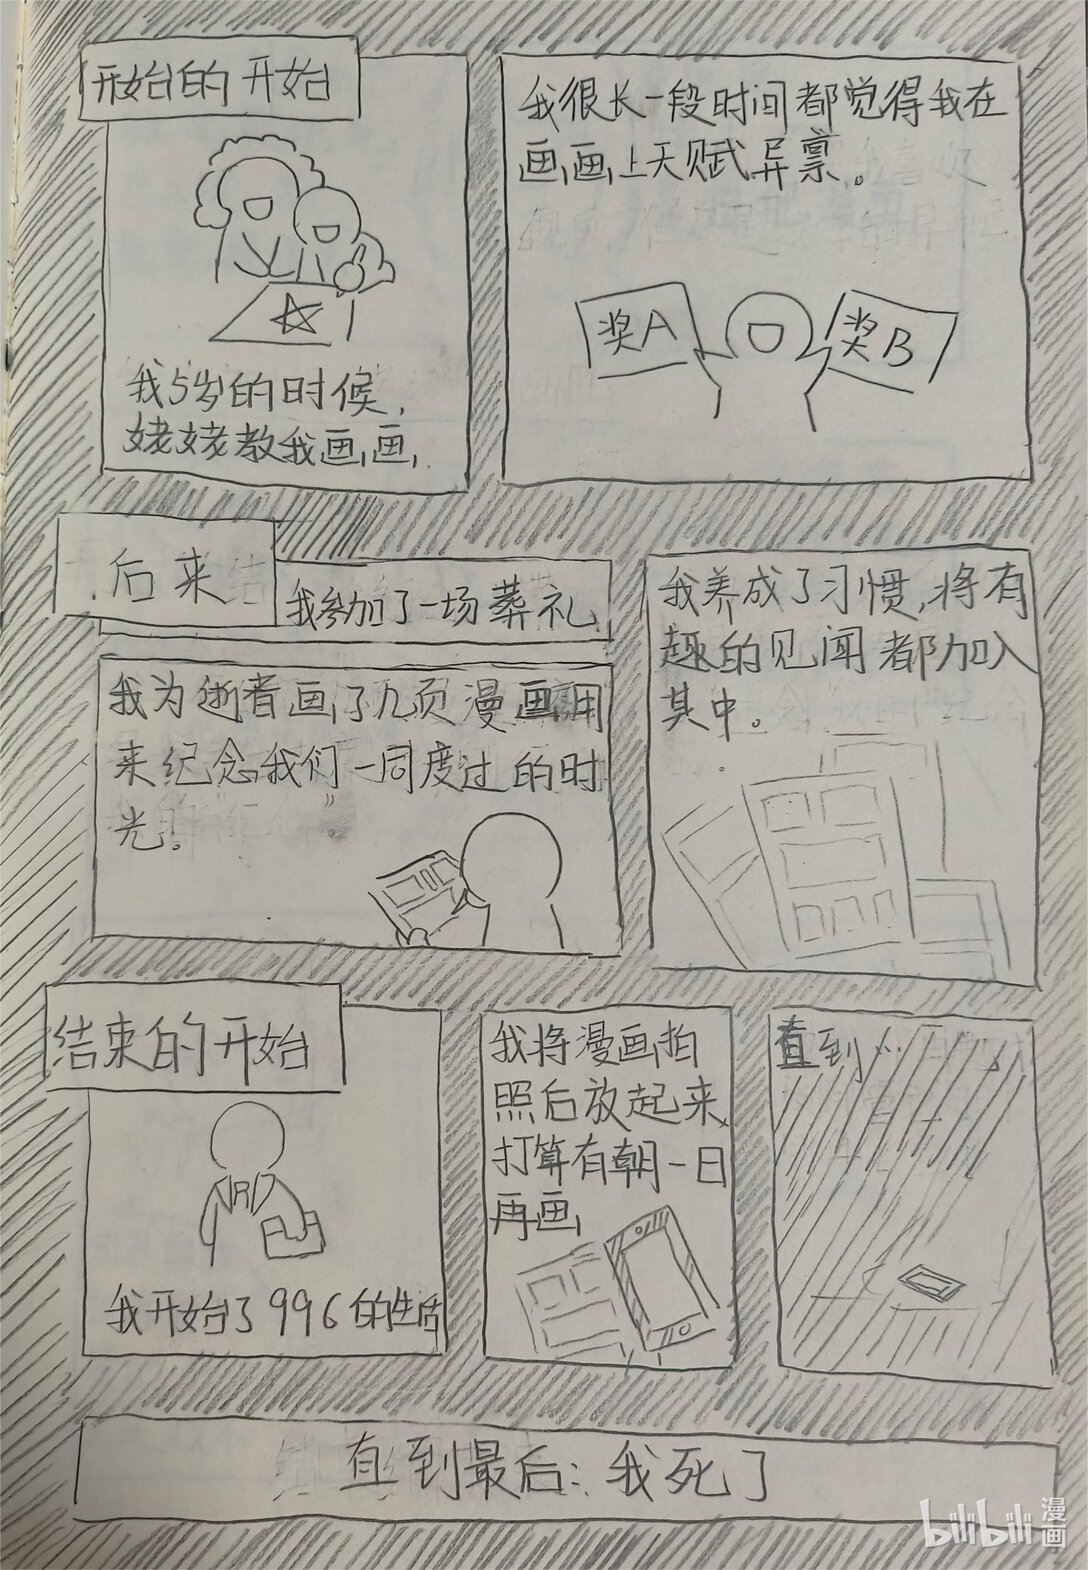 开始的开始
我5岁的时候,
姥姥教我画画.
我很长一段时间都觉得我在
画画上天赋异禀。
奖A
奖B
后来
我参加了一场葬礼
我为逝者画了几页漫画用
来纪念我们一同度过的时
光。
我养成了习惯,将有
趣的见闻都加入
其中。
结束的开始
我开始了996的生活
我将漫画拍
照后放起来,
打算有朝一日
再画
直到…
直到最后:我死了
bilibili
漫画